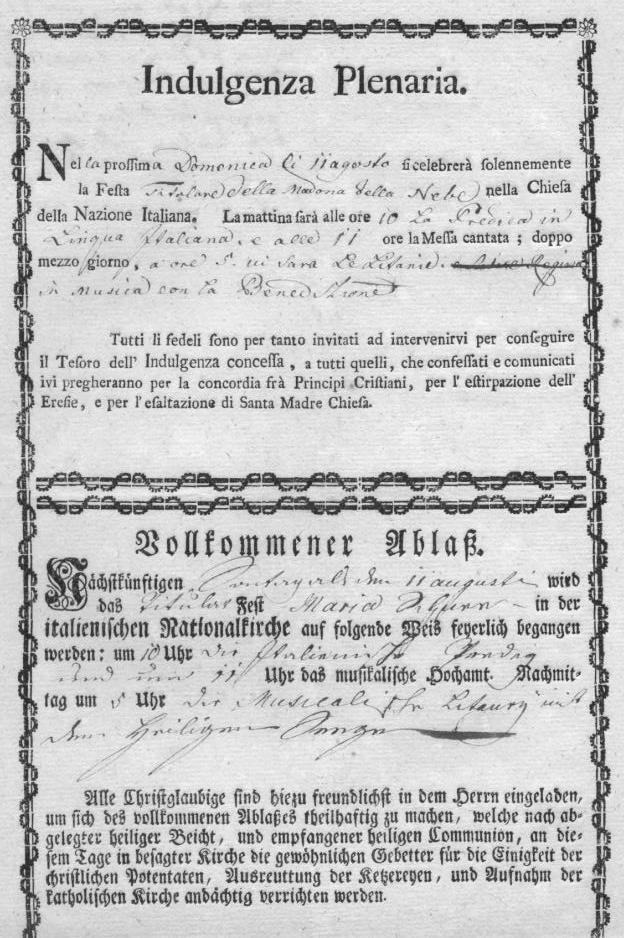 Indulgenza Plenaria.
Nel la prossima Domenica li 11 agosto si celebrerà solennemente
la Festa Titolare della Madona della Nebe nella Chiesa
della Nazione Italiana. La mattina sarà alle ore 10 La Predica in
Lingua Italiana. e alle 11 ore la Messa cantata; doppo
mezzo giorno, a ore 5. vi sara Le Litanie. e Regina
in Musica con la
Tutti li fedeli sono per tanto invitati ad intervenirvi per conseguire
il Tesoro dell' Indulgenza concessa, a tutti quelli, che confessati e comunicati
ivi pregheranno per la concordia frà Principi Cristiani, per l' estirpazione dell'
Eresie, e per l' esaltazione di Santa Madre Chiesa.
Vollkommener Ablaß.
Nächstkünftigen den 11 augusti wird
das Titular Fest Maria in der
italienischen Nationalkirche auf folgende Weis feyerlich begangen
werden: um 10 Uhr die Italienische Predig
und um 11 Uhr das musikalische Hochamt. Nachmit-
tag um 5 Uhr die mit
dem Heiligen Seegen
Alle Christglaubige sind hiezu freundlichst in dem Herrn eingeladen,
um sich des vollkommenen Ablaßes theilhaftig zu machen, welche nach ab-
gelegter heiliger Beicht, und empfangener heiligen Communion, an die-
sem Tage in besagter Kirche die gewöhnlichen Gebetter für die Einigkeit der
christlichen Potentaten, Ausreuttung der Ketzereyen, und Aufnahm der
katholischen Kirche andächtig verrichten werden.